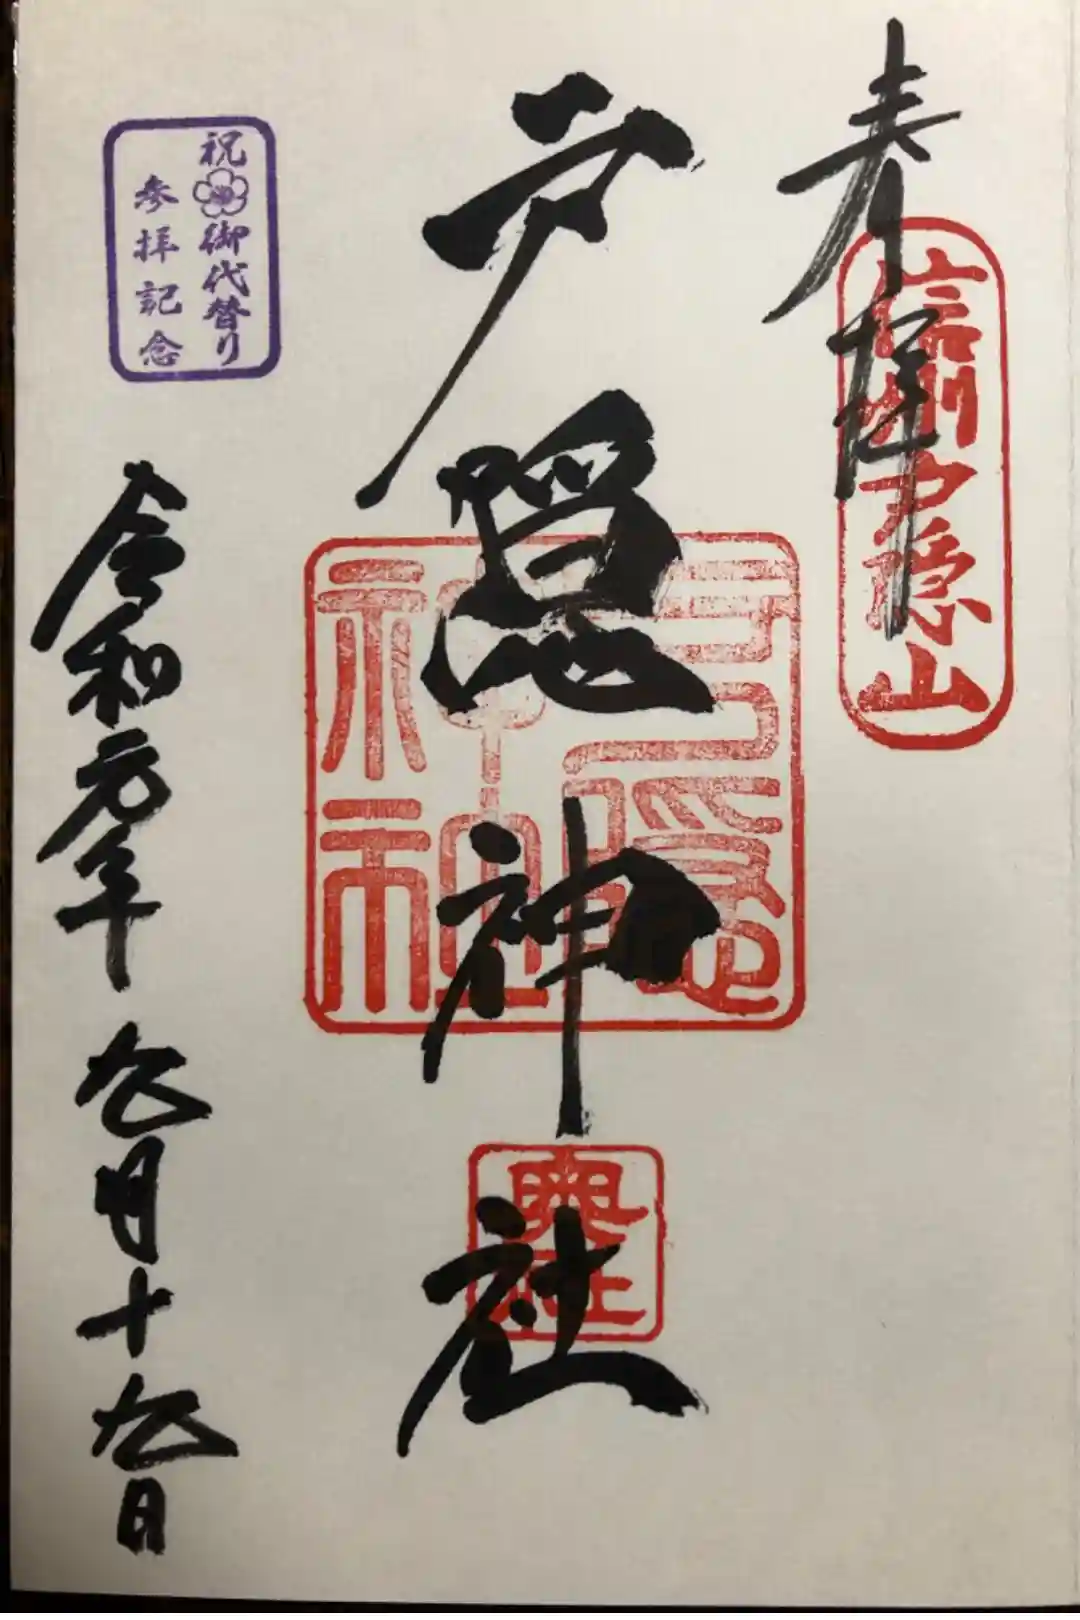 奉拝
信州戸隠山
戸隠神社
戸隠
神社
奥社
祝御代替り
参拝記念
令和元年九月十九日